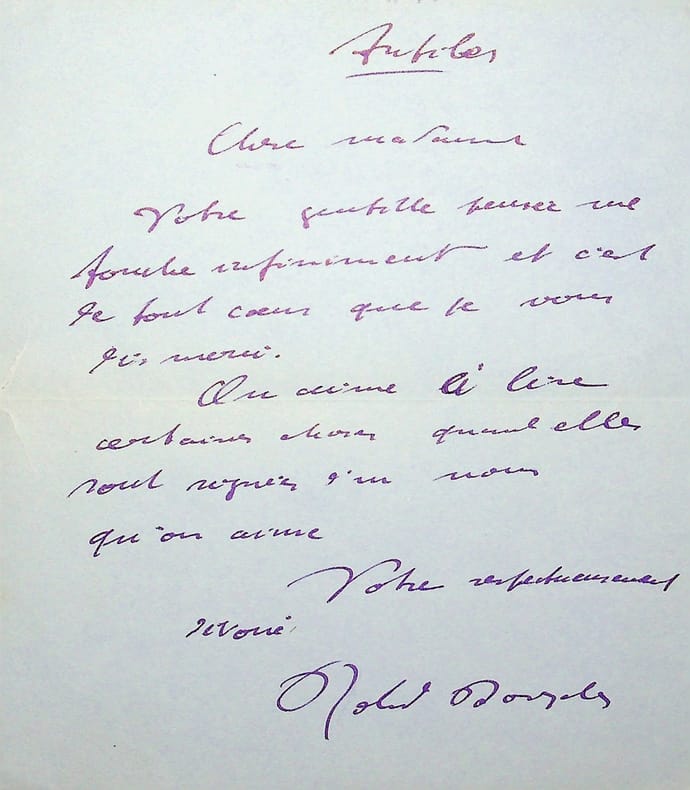 Antibes
Chère madame
Votre gentille pensée me
touche infiniment et c'est
de tout cœur que je vous
dis merci.
On aime à lire
certaines choses quand elles
sont signées d'un nom
qu'on aime
Votre respectueusement
dévoué
Roland Dorgelès